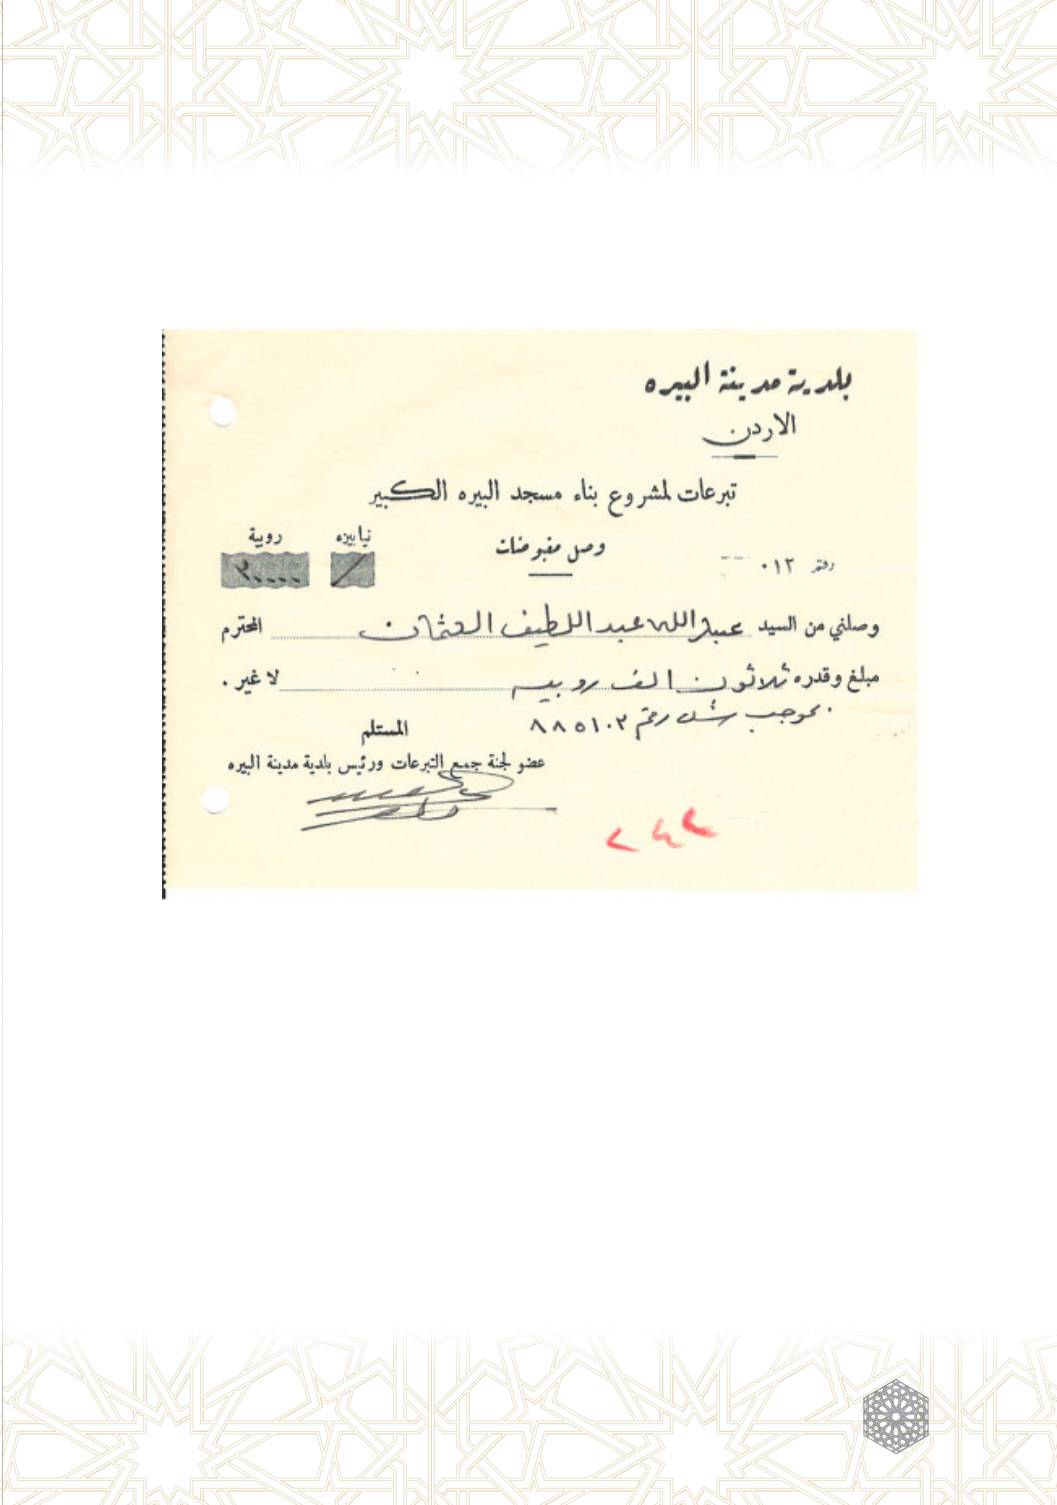 بلدية مدينة البيره
الاردن
تبرعات لمشروع بناء مسجد البيره الكبير
وصل مقبوضات
نيابيزه روبية
رقم ٠١٢
٣٠٠٠٠
وصلني من السيد عبدالله عبد اللطيف العثمان المحترم
مبلغ وقدره ثلاثون الف روبيه لا غير .
بموجب شك رقم ٨٨٥١٠٢
المستلم
عضو لجنة جمع التبرعات ورئيس بلدية مدينة البيره
٢٤٢